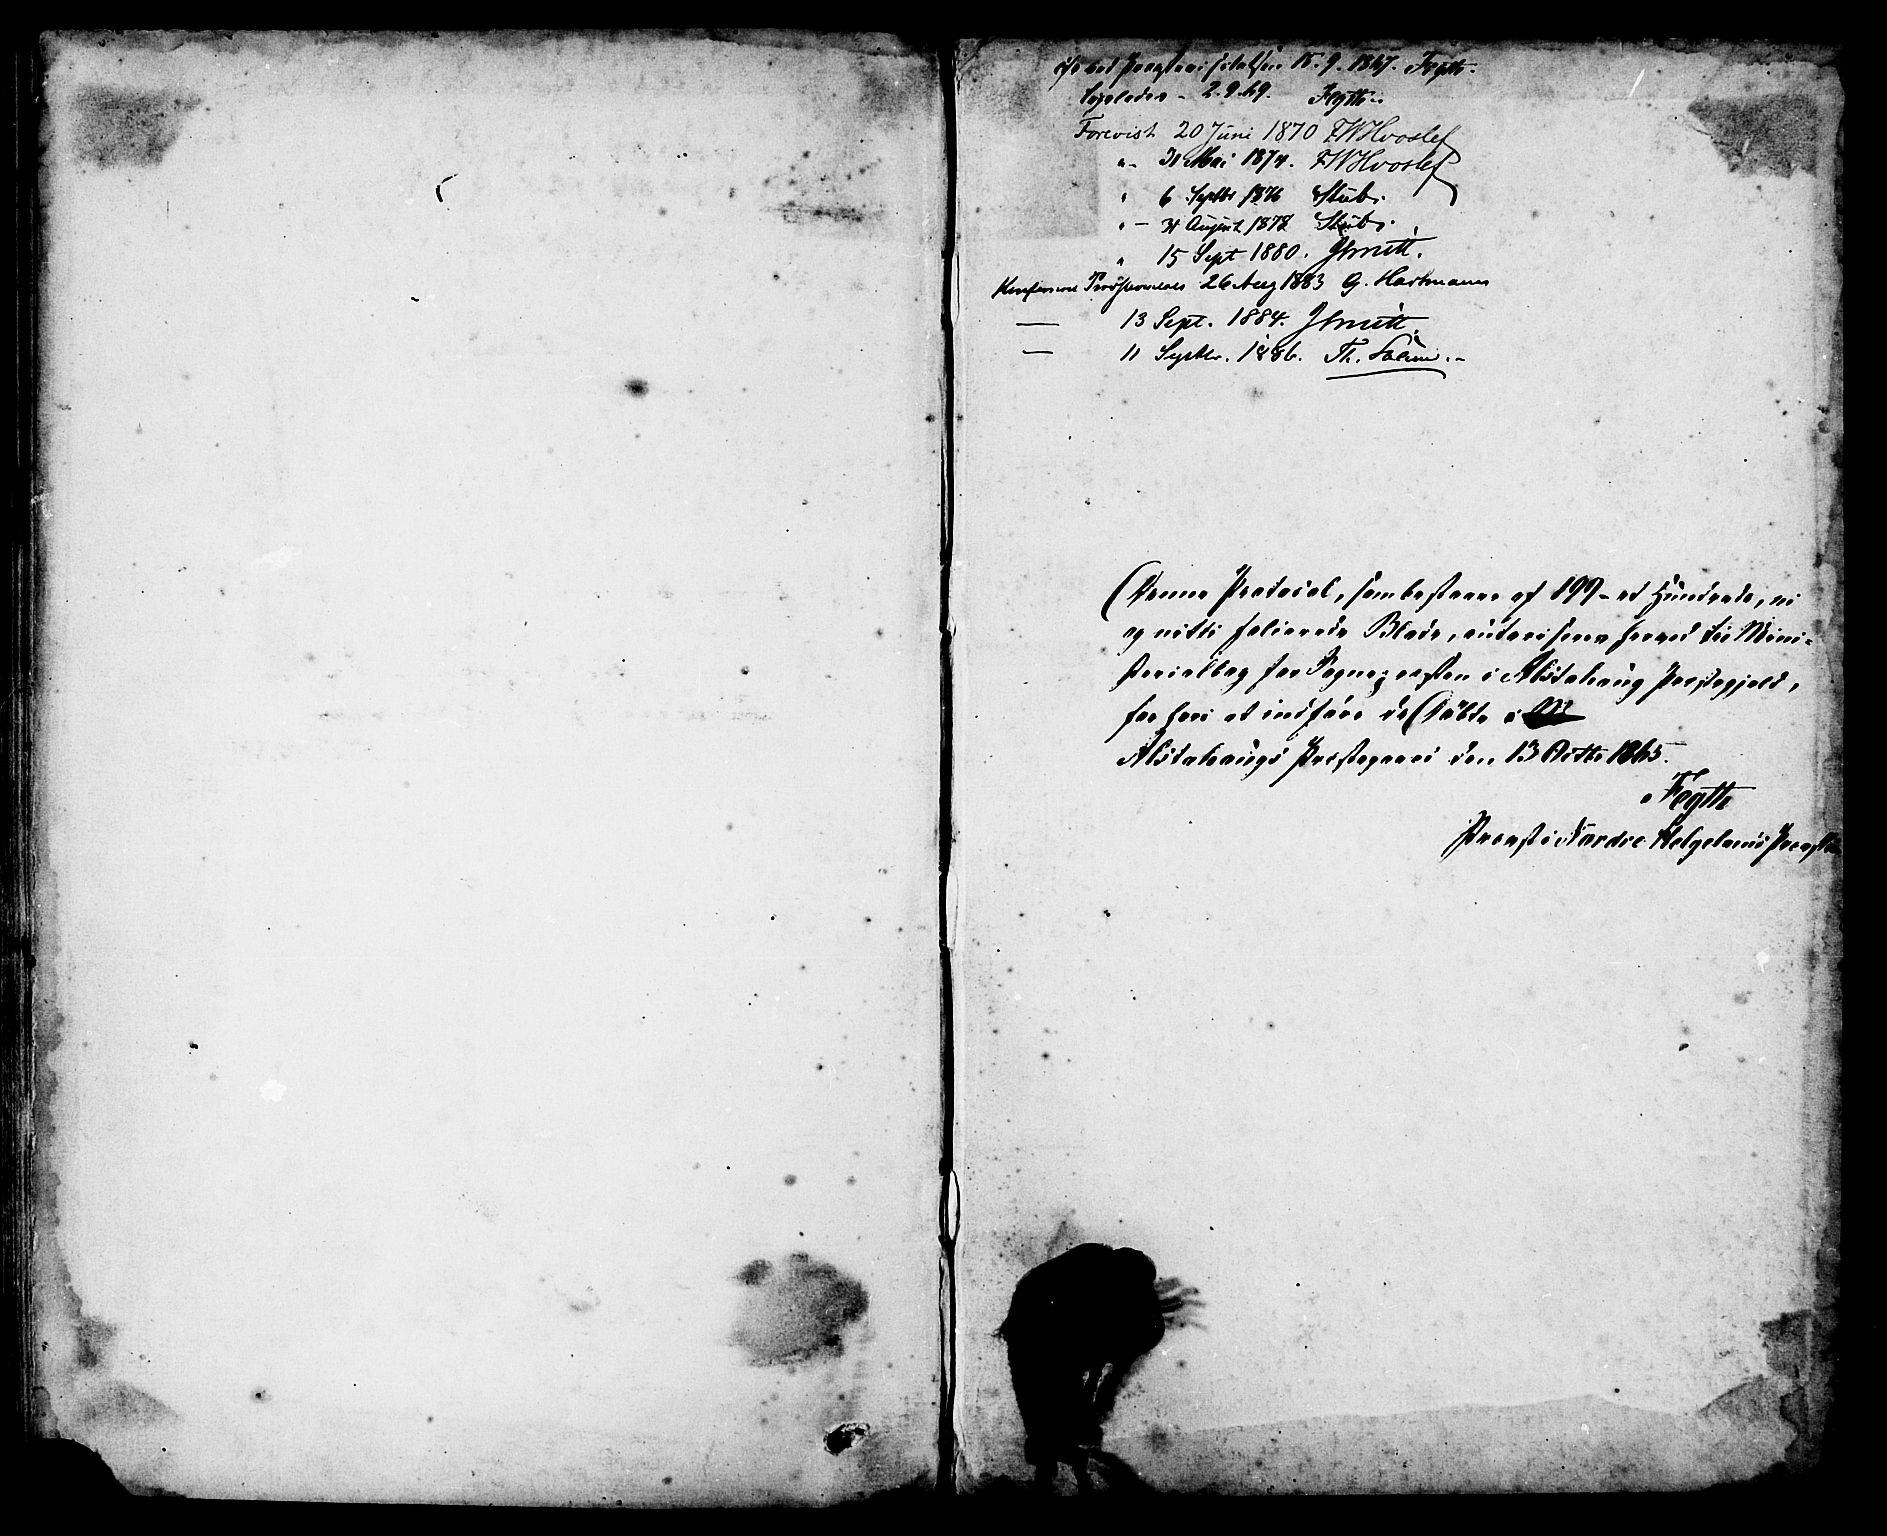 ved Provstevisitatsen 15.9.1867. Fegth.
Ligeledes - 2.9.69. Fegth.
Forevist 20 Juni 1870 FWHvoslef
"- 31 Mai 1874. FWHvoslef
" 6 Septbr 1876 Stub.
"- 31 August 1878 Stub.
" 15 Sept 1880. JSmitt.
Konfereret 26 Aug 1883 G. Hartmann
— 13 Sept. 1884. JSmitt.
— 11 Septbr. 1886. Th.
Denne Protocol, som bestaaer af 199 - et Hundrede, ni
og nitti folierede Blade, autoriseres herved til Mini-
sterialbog for Sognepræsten i Alstahaug Præstegjeld,
for heri at indføre de Døbte i
Alstahaugs Præstegaard den 13 Octbr 1865.
Fegth
Provst i Nordre Helgelands Provsti